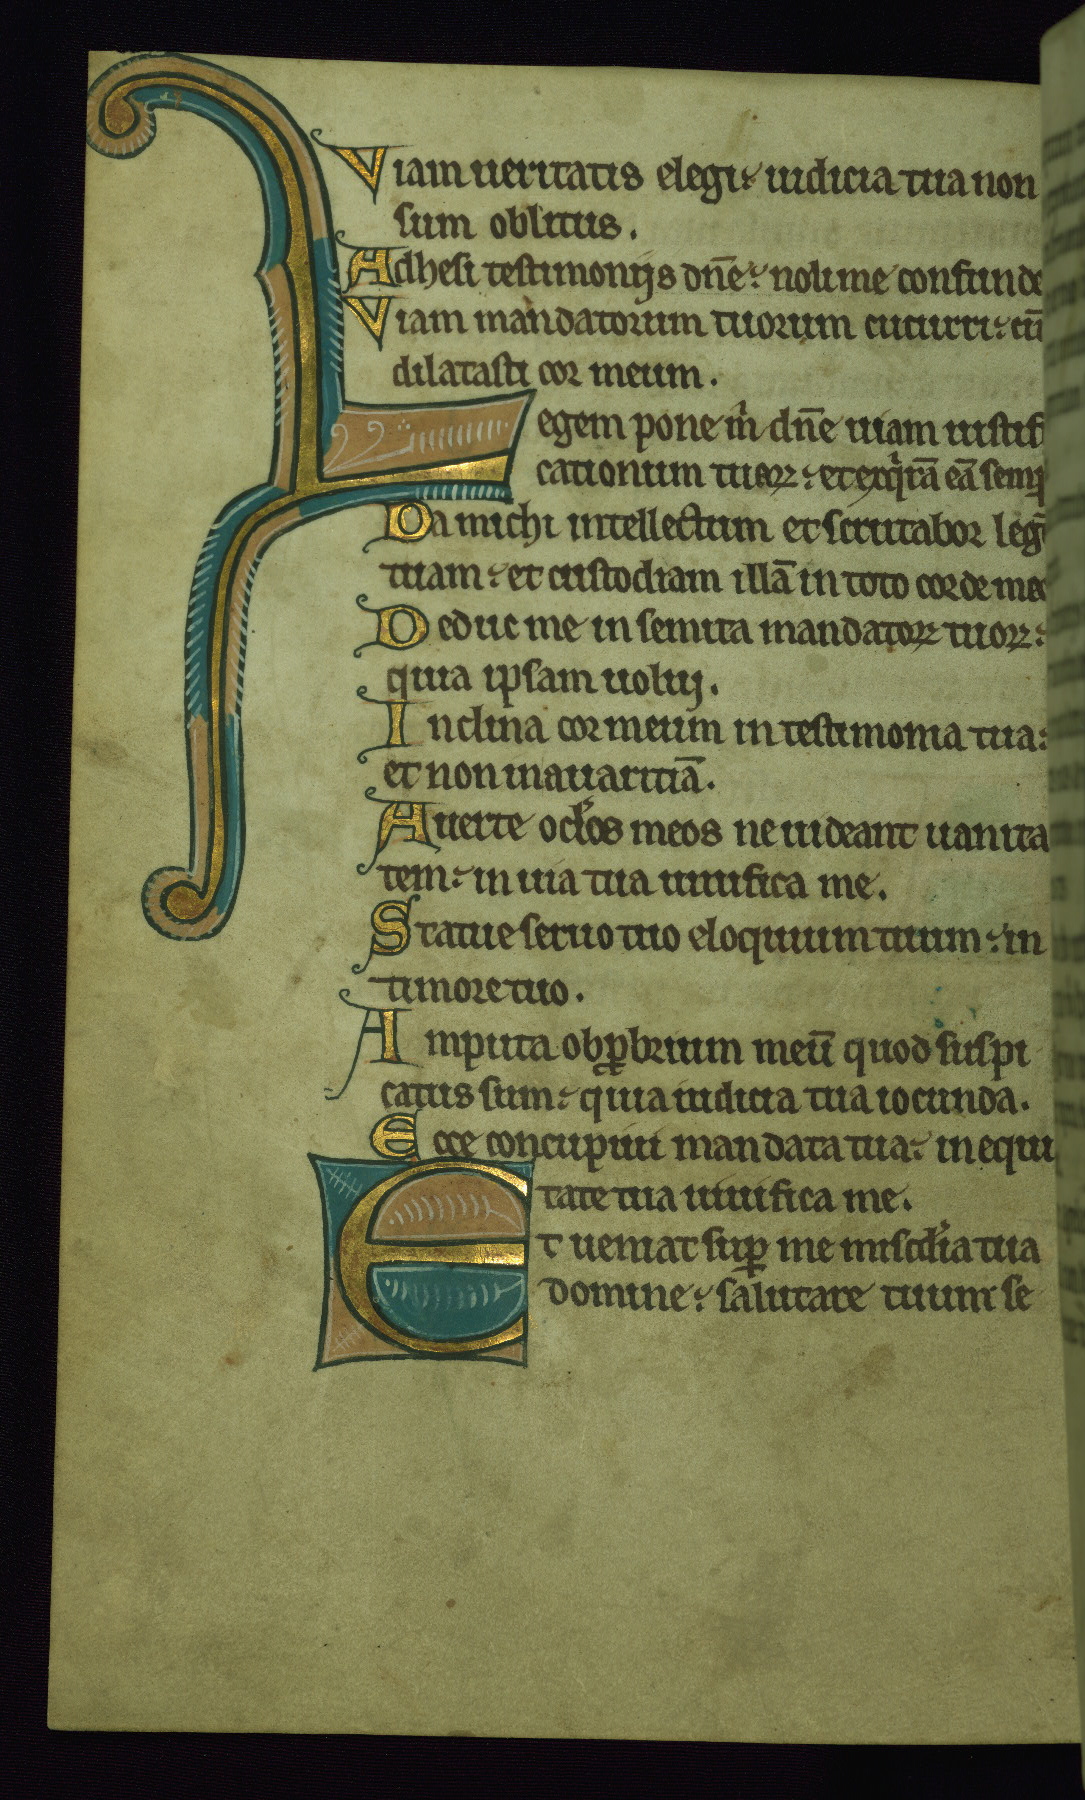 Viam ueritatis elegi: iudicia tua non
sum oblitus.
Adhesi testimonijs dn̄e: noli me confunde
Viam mandatorum tuorum cucurri: cū
dilatasti cor meum.
Legem pone m̄ dn̄e uiam iustifi
cationum tuaꝝ: et exqͥrā eā semꝑ
Da michi intellectum et scrutabor legē
tuam: et custodiam illā in toto corde meo
Deduc me in semita mandatoꝝ tuoꝝ:
quia ipsam uoluj.
Inclina cor meum in testimonia tua:
et non in auaritiā.
Auerte oclo̓s meos ne uideant uanita
tem: in uia tua uiuifica me.
Statue seruo tuo eloquium tuum: in
timore tuo.
Amputa obꝓbrium meū quod suspi
catus sum: quia iudicia tua iocunda.
Ecce concupiui mandata tua: in equi
tate tua uiuifica me.
Et ueniat suꝑ me miscd̓ia tua
domine: salutare tuum se